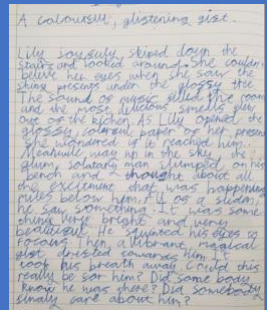 A colourful, glistening gift.
Lily joyfully skiped down the
stairs and looked around. She couldn't
beleive her eyes when she saw the
shiny presents under the glossy tree
The sound of music filled the room
and the most luscious smells flew
out of the kitchen. As Lily opened the
glossy, colourful paper of her present
she wondered if it reached him.
Meanwhile way up in the sky the
glum, solatary man slumped on his
bench and thought about all
the excitement that was happening
miles below him. All of a sudden,
he saw something. It was some
thing very bright and very
beautiful. He squinted his eyes to
focus. Then, a vibrant, magical
gift drifted towards him. It
took his breath away. Could this
really be for him? Did some body
know he was there? Did somebody
finally care about him?